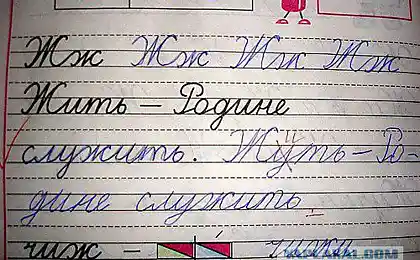 Жж Жж Жж Жж
Жить – Родине
служить. Жить – Ро-
дине служить
чиж – чижи